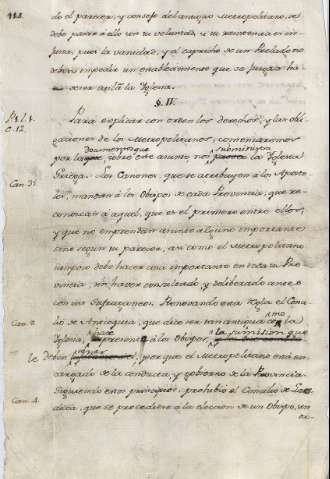 do el parecer, y consejo del antiguo Metropolitano, se
debe pasar à ello sin su voluntad, si su resistencia es in-
justa, pues la vanidad, y el capricho de un Prelado no
deberà impedir un establecimiento que se juzga
util à la Iglesia.
§. IV.
Para explicar con orden los derechos, y las obli-
gaciones de los Metropolitanos, comenzaremos
por los documentos que sobre este asunto nos subministra la Iglesia
Griega. Los Canones, que se atribuyen à los Aposto-
les, mandan à los Obispos de cada Provincia, que re-
conozcan à aquel, que es el primero entre ellos,
y que no emprendan asunto alguno importante
sino segun su parecer, asi como el Metropolitano
tampoco debe hacer cosa importante en toda su Pro-
vincia, sin haver consultado, y deliberado antes
con sus Sufraganeos. Renovando esta regla el Conci-
Can. 2. lio de Antioquia, que dice ser tan antigua como la
Iglesia, à los Obispos la sumision que
le deben, por que el Metropolitano està en-
cargado de la conducta, y gobierno de la Provincia.
Siguiendo estos principios, prohibiò el Concilio de
Can. 4. que se procediese à la eleccion de un Obispo, sin